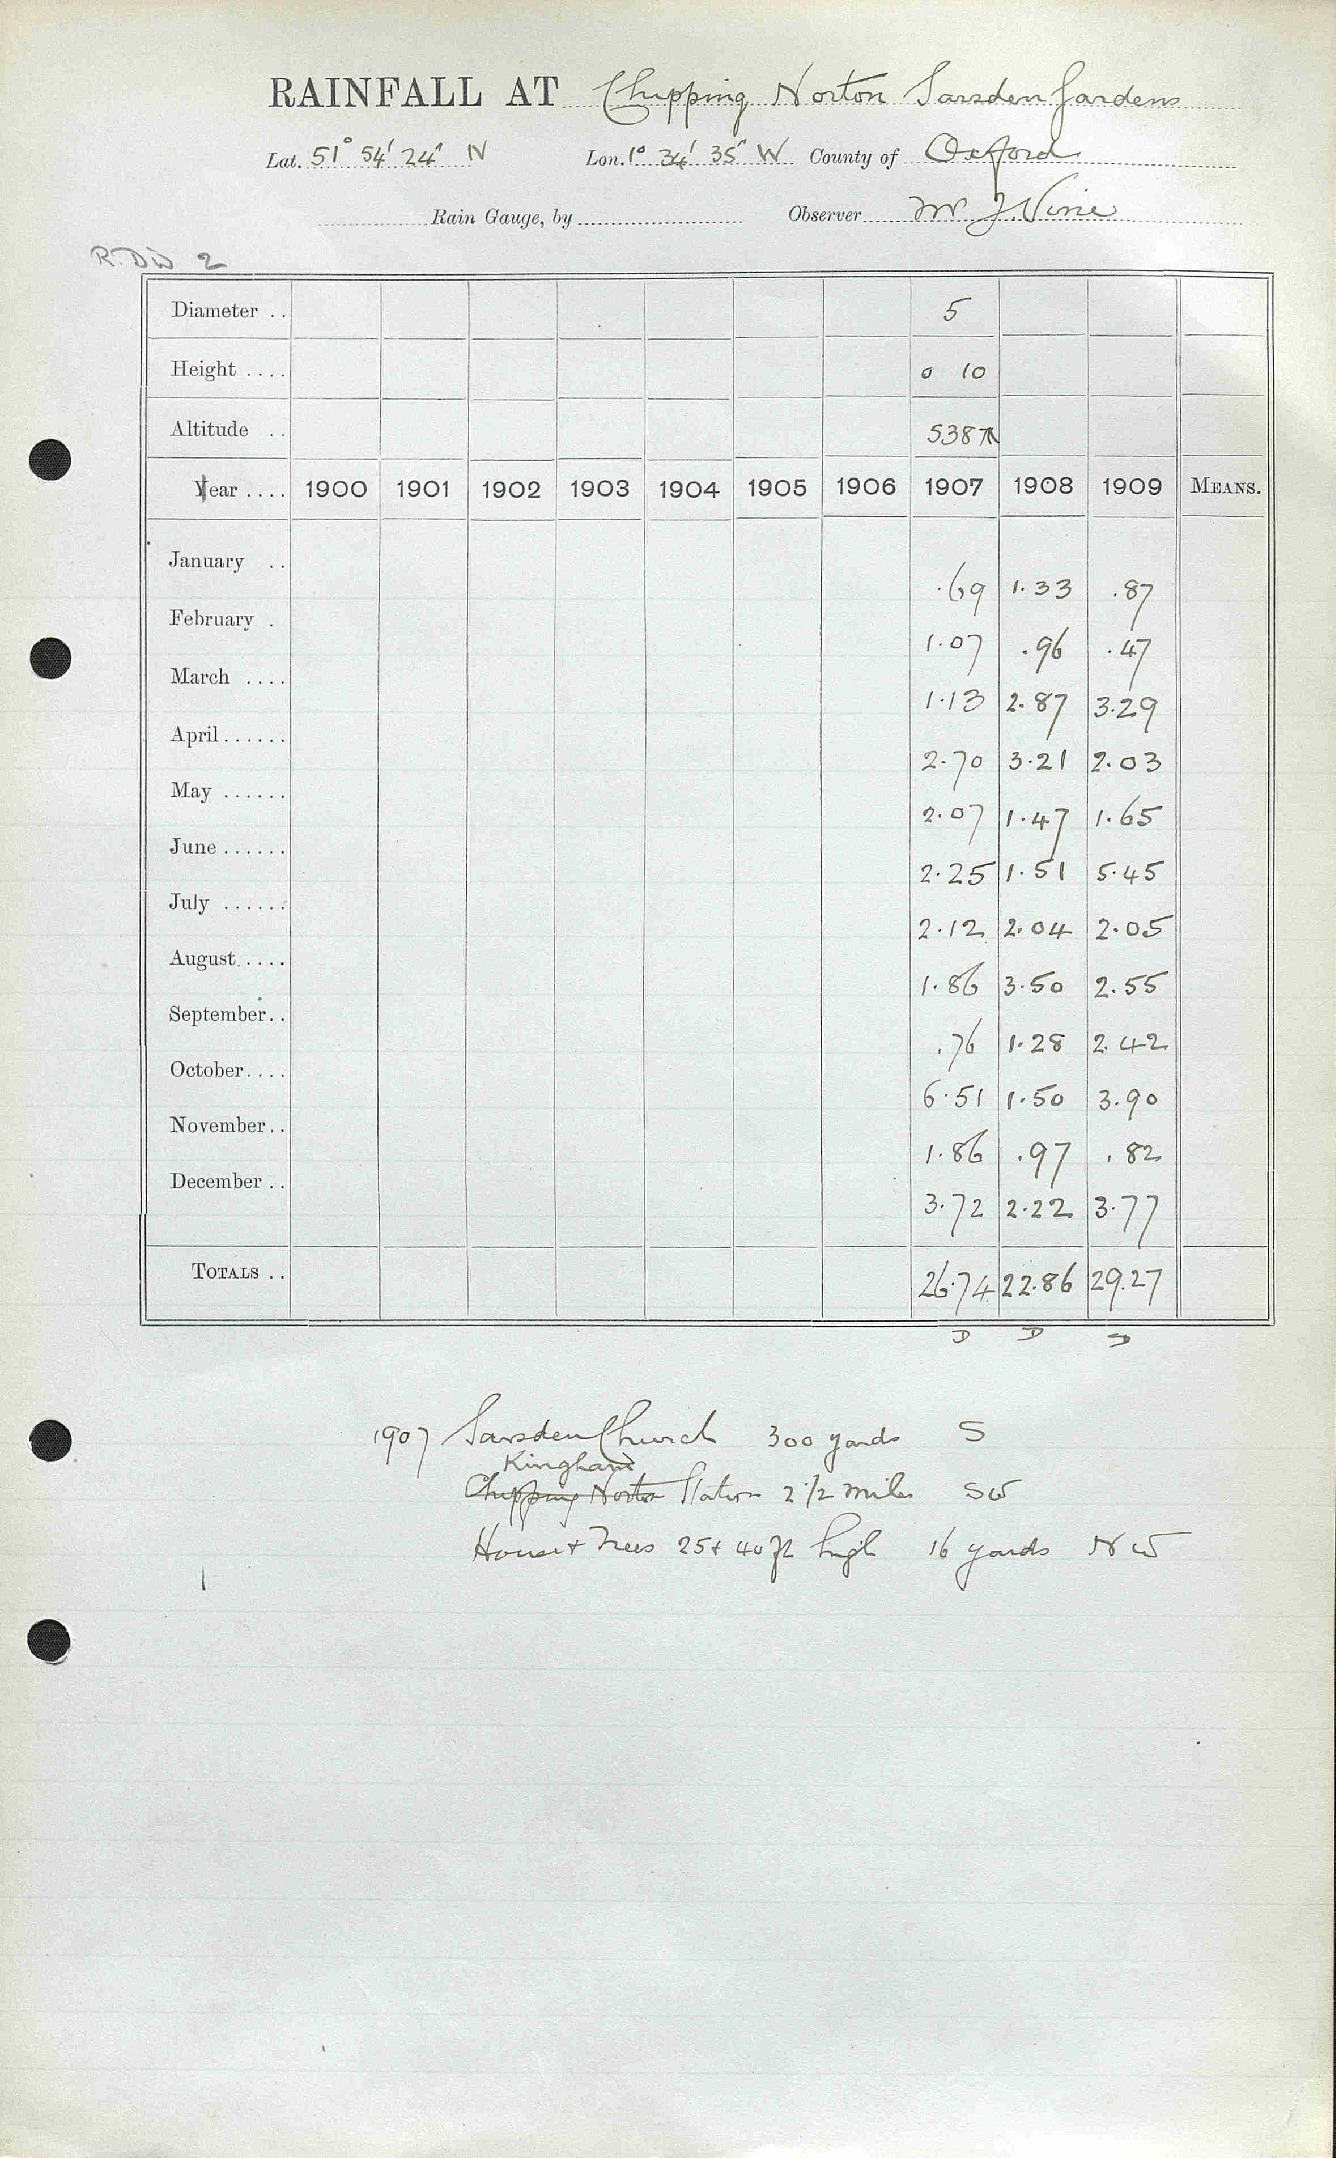 RAINFALL AT Chipping Norton Sarsden Gardens
Lat. 51° 54' 24" N Lon. 1° 34' 35" W County of Oxford
Rain Gauge, by Observer Mr J.
R. DW 2
Diameter .. 5
Height .... 0 10
Altitude .. 538
Year .... 1900 1901 1902 1903 1904 1905 1906 1907 1908 1909 MEANS.
January ..
.69 1.33 .87
February .
1.07 .96 .47
March ....
1.13 2.87 3.29
April ......
2.70 3.21 2.03
May ......
2.07 1.47 1.65
June ......
2.25 1.51 5.45
July ......
2.12 2.04 2.05
August .....
1.86 3.50 2.55
September..
.76 1.28 2.42
October....
6.51 1.50 3.90
November..
1.86 .97 .82
December ..
3.72 2.22 3.77
TOTALS .. 26.74 22.86 29.27
D D D
1907 Sarsden Church 300 yards S
Kingham
Chipping Norton Station 2 1/2 miles SW
House + Trees 25 + 40 ft high 16 yards NW